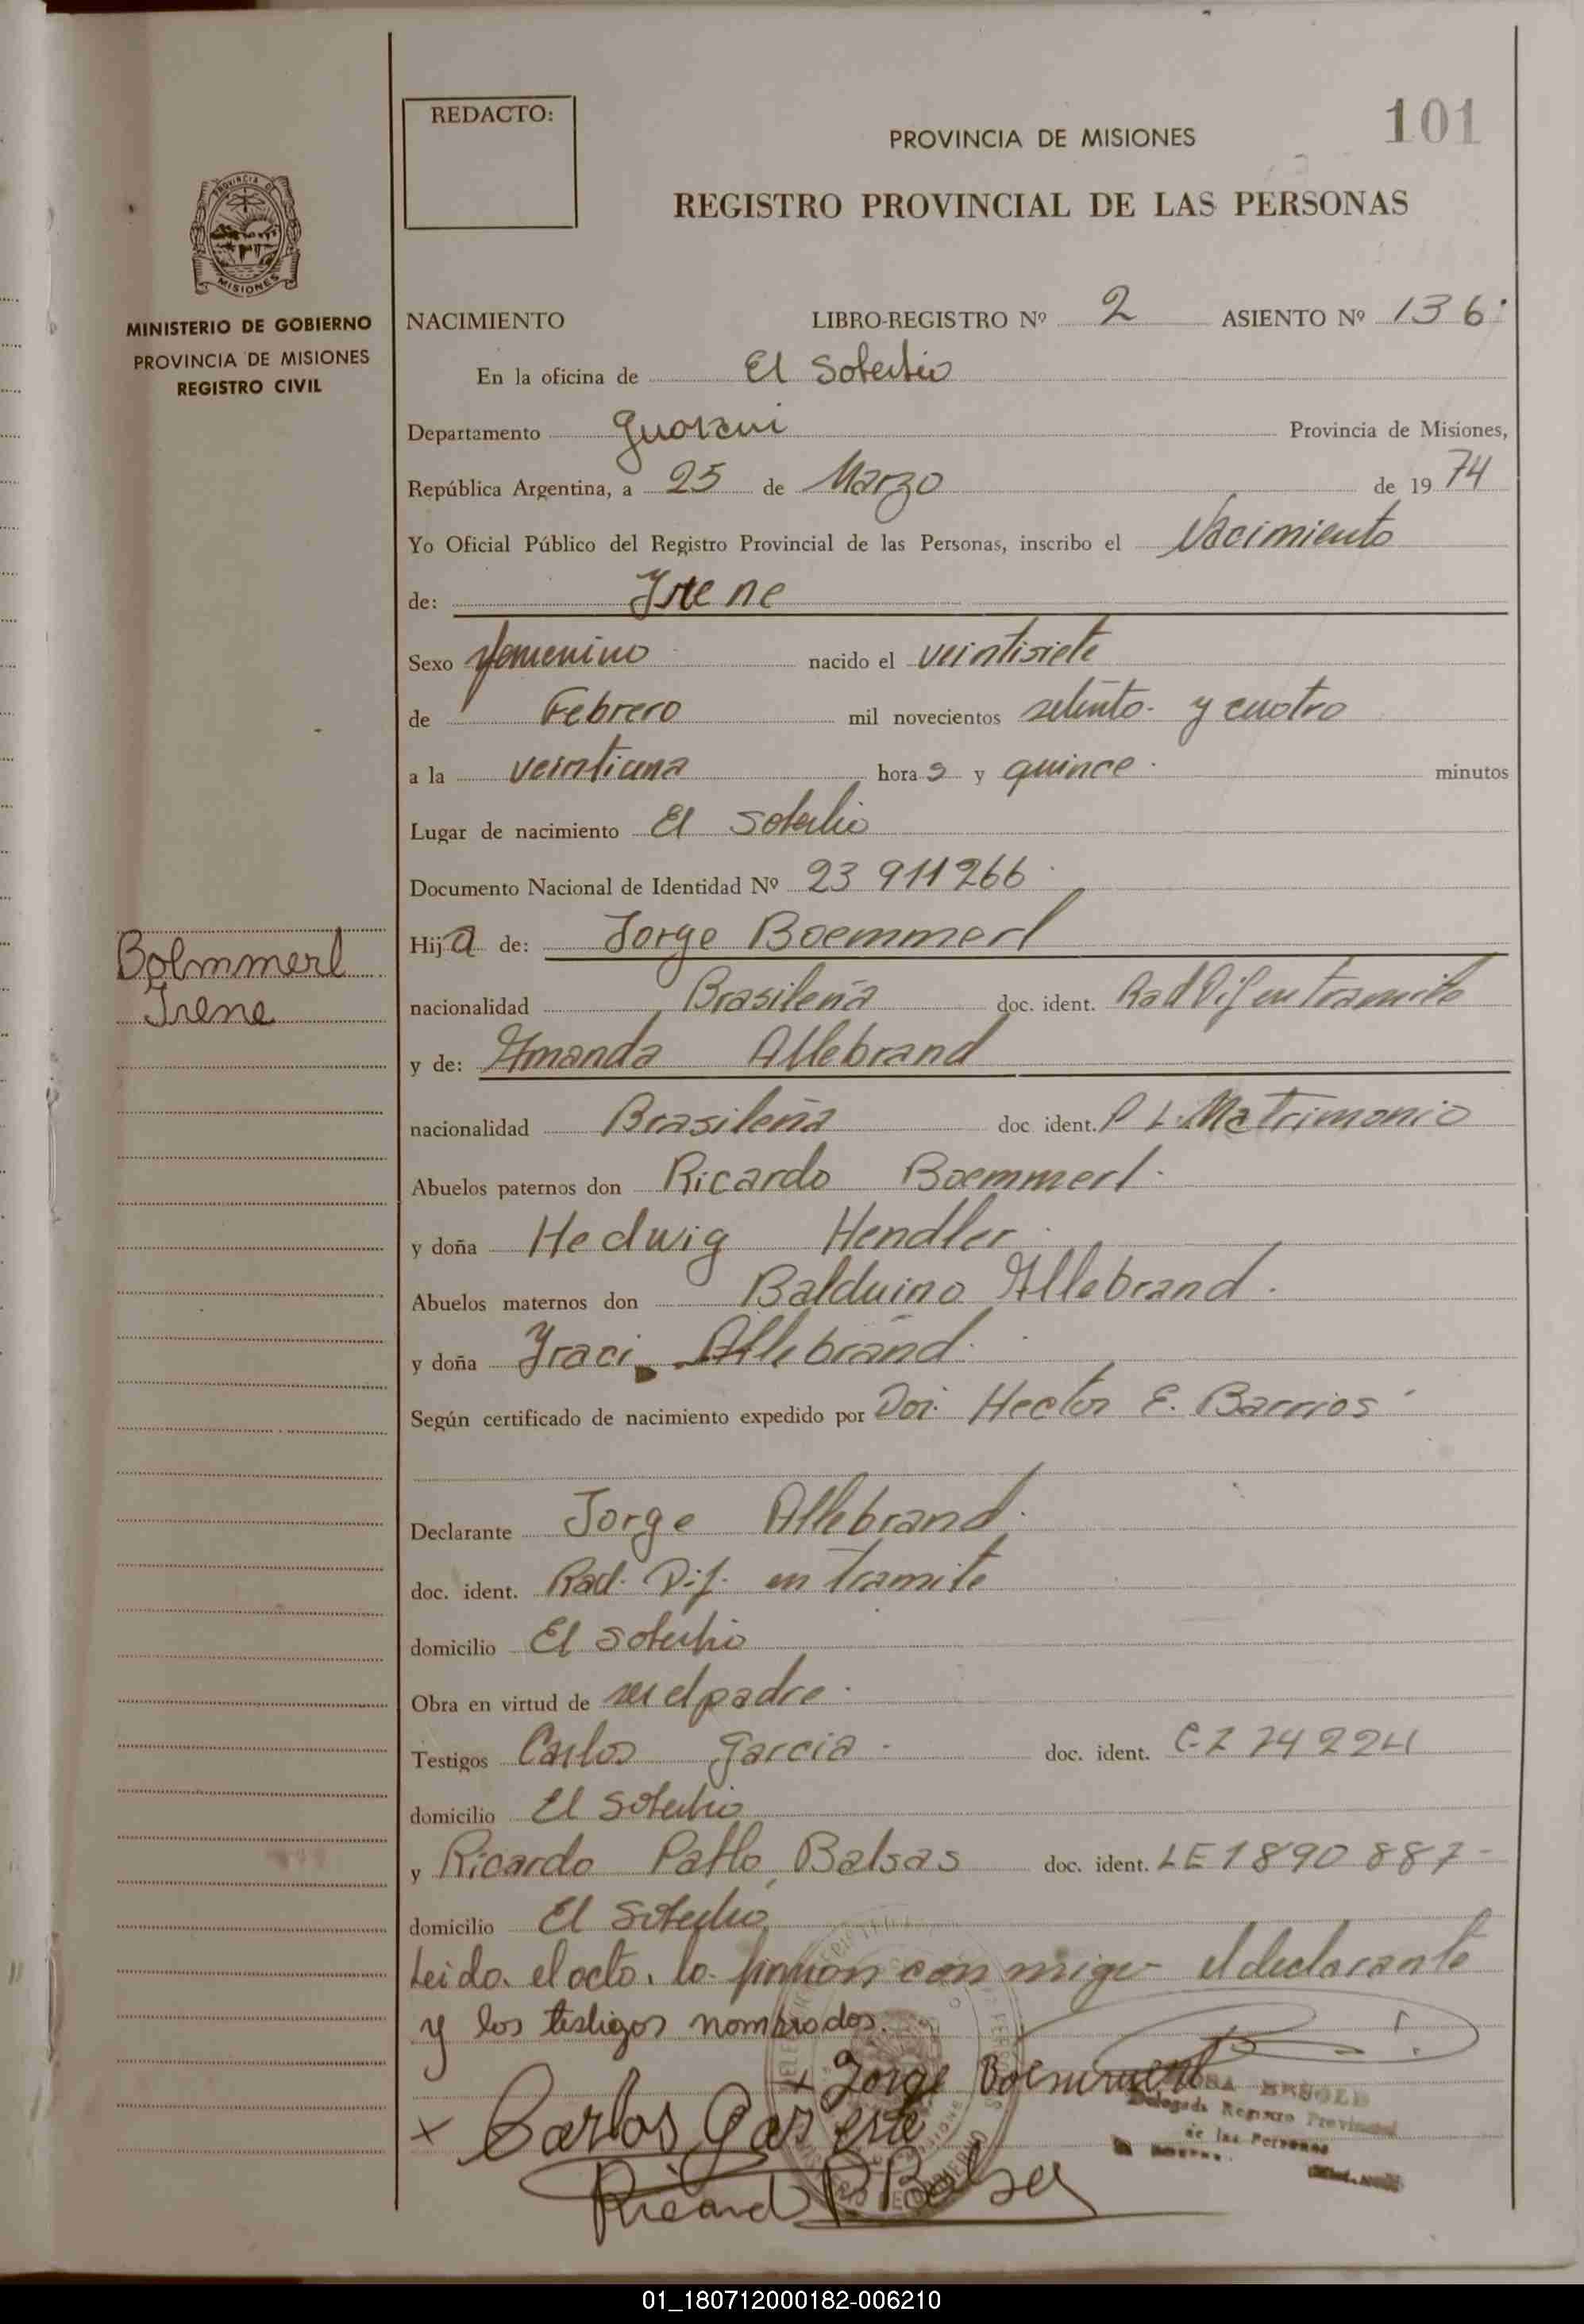 REDACTO:
101
PROVINCIA DE MISIONES
REGISTRO PROVINCIAL DE LAS PERSONAS
PROVINCIA DE
MISIONES
MINISTERIO DE GOBIERNO
PROVINCIA DE MISIONES
REGISTRO CIVIL
NACIMIENTO LIBRO-REGISTRO Nº 2 ASIENTO Nº 136
En la oficina de El Soberbio
Departamento Guarani Provincia de Misiones,
República Argentina, a 25 de Marzo de 1974
Yo Oficial Público del Registro Provincial de las Personas, inscribo el Nacimiento
de: Irene
Sexo femenino nacido el veintisiete
de Febrero mil novecientos setenta y cuatro
a la veintiuna horas y quince minutos
Lugar de nacimiento El Soberbio
Documento Nacional de Identidad Nº 23 911266
Hija de: Jorge Boemmerl
Boemmerl
Irene
nacionalidad Brasileña doc. ident. Rad Dif en tramite
y de: Amanda Allebrand
nacionalidad Brasileña doc. ident. P L. Matrimonio
Abuelos paternos don Ricardo Boemmerl
y doña Hedwig Hendler
Abuelos maternos don Balduino Allebrand.
y doña Iraci Allebrand.
Según certificado de nacimiento expedido por Hector E. Barrios
Declarante Jorge Allebrand.
doc. ident. Rad. Dif. en tramite
domicilio El Soberbio
Obra en virtud de ser el padre.
Testigos Carlos Garcia doc. ident.
domicilio El Soberbio
y Ricardo Pablo Balsas doc. ident. LE 1890 887
domicilio El Soberbio
Leida el acta, la firman con migo el declarante
y los testigos nombrados.
x Jorge Boemmerl
x Carlos
Ricardo P. Balsas
Registro Provincial
de las Personas
01_180712000182-006210